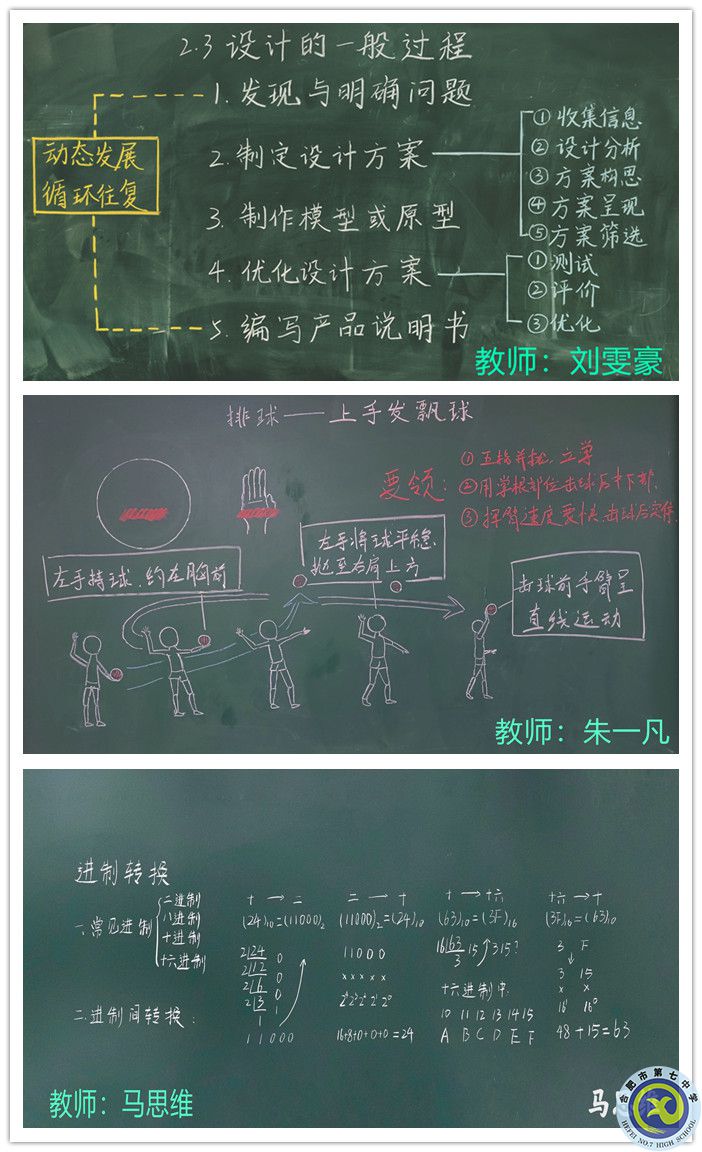 2.3 设计的一般过程
1. 发现与明确问题
动态发展
循环往复
2. 制定设计方案
① 收集信息
② 设计分析
③ 方案构思
④ 方案呈现
⑤ 方案筛选
3. 制作模型或原型
4. 优化设计方案
① 测试
② 评价
③ 优化
5. 编写产品说明书
教师：刘雯豪
排球——上手发飘球
要领：
① 五指并拢，立掌
② 用掌根部位击球后中下部.
③ 挥臂速度要快，击球后突停.
左手持球，约左胸前
左手将球平稳
抛至右肩上方
击球前手臂呈
直线运动
教师：朱一凡
进制转换
一.常见进制
二进制
八进制
十进制
十六进制
二.进制间转换：
十→二
(24)₁₀=(11000)₂
2 24 0
2 12 0
2 6 0
2 3 1
1
11000
二→十
(11000)₂=(24)₁₀
11000
×××××
2⁴2³2²2¹2⁰
16+8+0+0+0=24
十→十六
(63)₁₀=(3F)₁₆
16 63 15 315?
3
十六进制中
10 11 12 13 14 15
A B C D E F
十六→十
(3F)₁₆=(63)₁₀
3 F
↓
3 15
× ×
16¹ 16⁰
48+15=63
教师：马思维
马
合肥市第七中学
HEFEI NO.7 HIGH SCHOOL